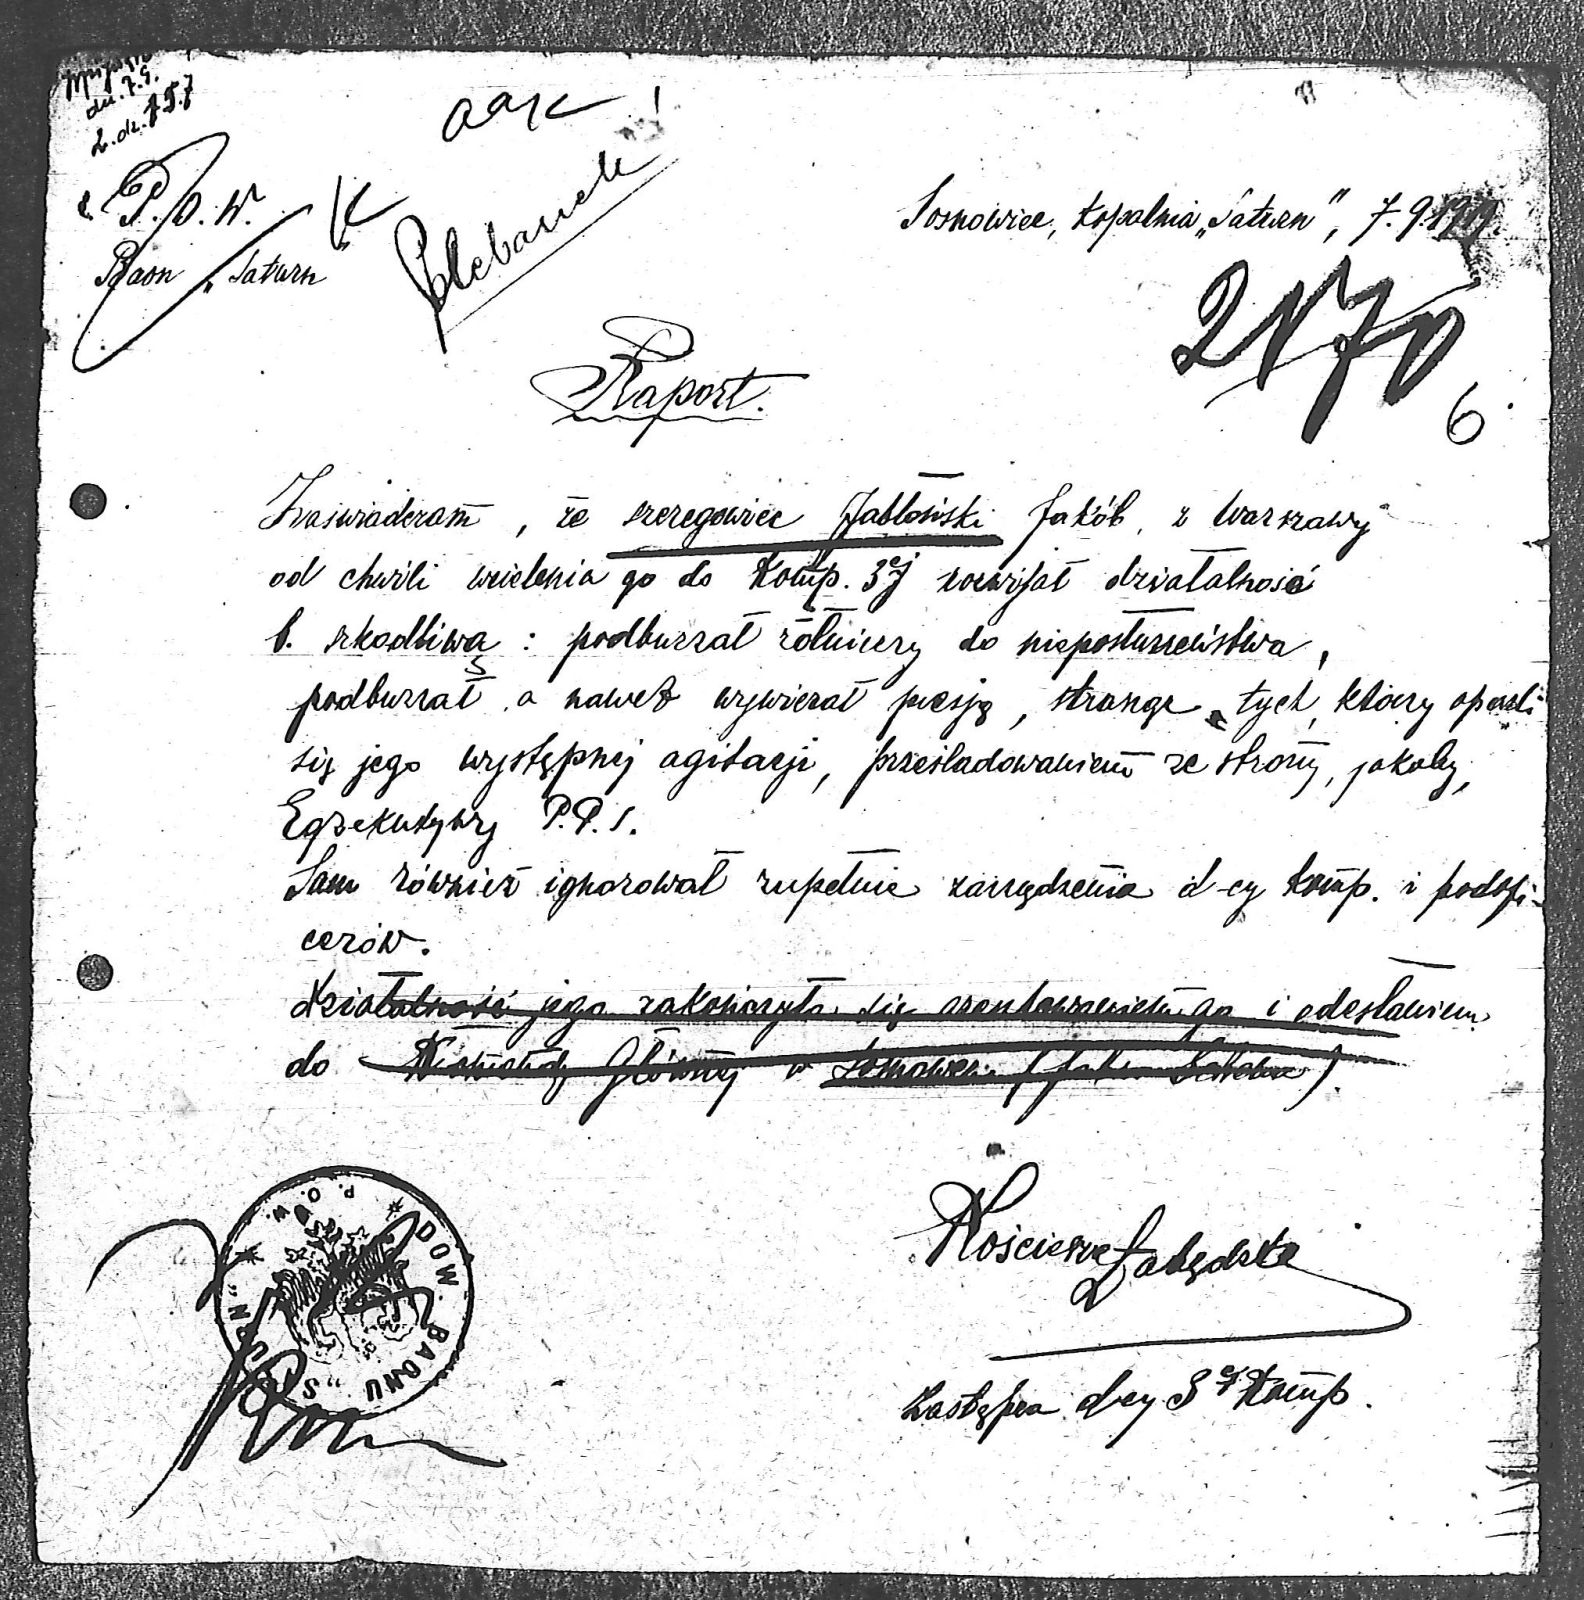 dn. 7.9.
L. dz. 757
P.O.W.
Baon „Saturn"
Sosnowiec, kopalnia „Saturn", 7.9.1919.
2170
6
Raport.
Zaświadczam, że szeregowiec Jabłoński Jakób z Warszawy
od chwili wcielenia go do Komp. 3ej rozwijał działalność
b. szkodliwą: podburzał żółnierzy do nieposłuszeństwa,
podburzał a nawet wywierał presję, strasząc tych, którzy oparli
się jego występnej agitacji, prześladowaniem ze strony, jakoby,
Egzekutywy P.P.S.
Sam również ignorował zupełnie zarządzenia d-cy komp. i podofi-
cerów.
Działalność jego zakończyła się aresztowaniem go i odesłaniem
do Komendy Głównej w Sosnowcu
Kościesza Łabędzki
Zastępca d-cy 3ej Komp.
P.O.W. * DOW. BAONU „SATURN" *